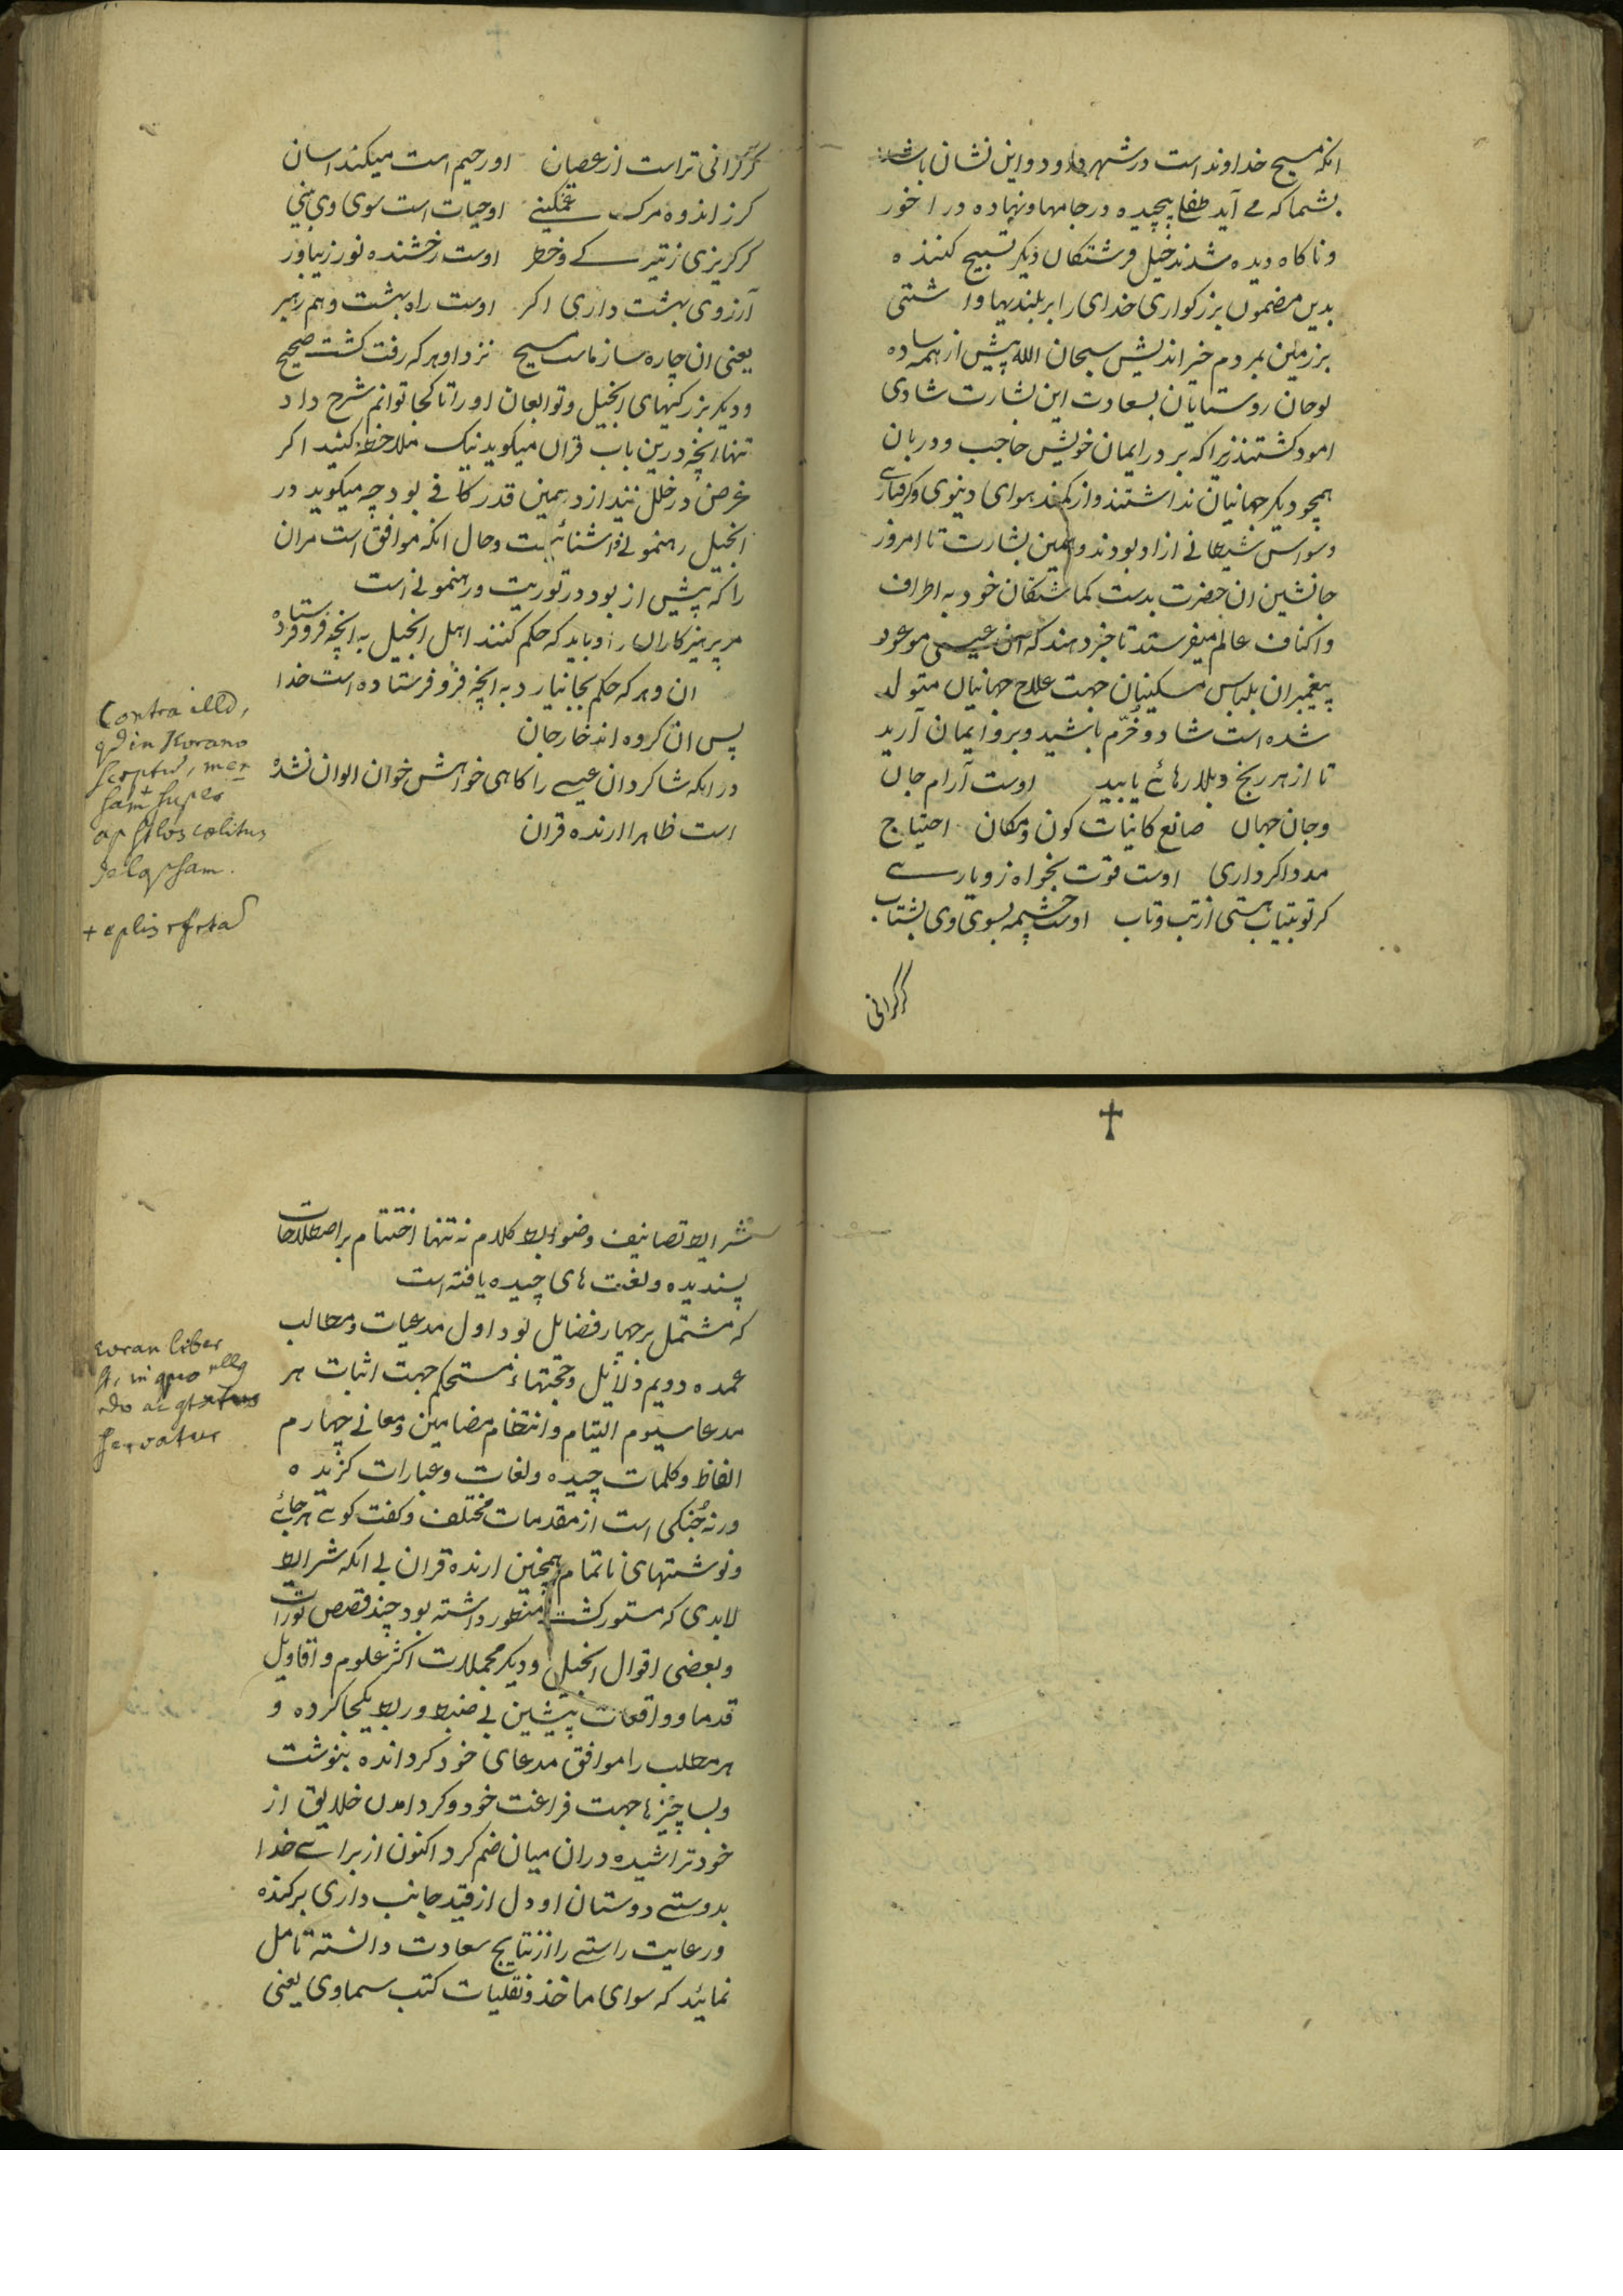 انکه مسیح خداوند است در شهر داود و این نشان باشد
بشما که می آید طفل پیچیده در جامها و نهاده در اخور
و ناکاه دیده شدند خیل فرشتکان دیکر تسبیح کننده
بدین مضمون بزرکواری خدای را بر بلندیها و اشتی
بر زمین بمردم خیر اندیش سبحان الله پیش از همه ساده
لوحان روستایان بسعادت این بشارت شادی
امود کشتند زیرا که بر در ایمان خویش حاجب و دربان
همچو دیکر جهانیان نداشتند و از کمند هوای دنیوی و کرفتاری
وسواس شیطانی ازاد بودند و همین بشارت تا امروز
جانشین ان حضرت بدست کماشتکان خود به اطراف
و اکناف عالم میفرستد تا خبر دهند که عیسی موعود
پیغمبران بلباس مسکینان جهت علاج جهانیان متولد
شده است شاد و خرّم باشید و برو ایمان آرید
تا از هر رنج و بلا رهائی یابید اوست آرام جان
و جان جهان صانع کاینات کون و مکان احتیاج
مدد اکر داری اوست قوت بخواه زو یاری
کر تو بیتاب هستی از تب و تاب اوست چشمه بسوی وی بشتاب
کر کرانی
کر کرانی تراست از عصیان او رحیم است میکند اسان
کر ز اندوه مرک غمکینی او حیات است سوی وی بینی
کر کریزی ز تیرکی و خطر اوست رخشنده نور زیباور
آرزوی بهشت داری اکر اوست راه بهشت و هم رهبر
یعنی ان چاره ساز ماست مسیح نزد او هر که رفت کشت صحیح
و دیکر بزرکیهای انجیل و توابعان او را تا کجا توانم شرح داد
تنها انچه درین باب قران میکوید نیک ملاحظه کنید اکر
غرض در خلل نیندازد همین قدر کافی بود چه میکوید در
انجیل رهنمونی و اشنائیست و حال انکه موافق است مران
را که پیش از بود در توریت و رهنمونی است
مر پرهیزکاران را و باید که حکم کنند اهل انجیل به انچه فرو فرستاده
ان و هر که حکم بجا نیارد به انچه فرو فرستاده است خدا
پس ان کروه اند خارجان
در انکه شاکردان عیسی را کاهی خواهش خوان الوان نشده
است ظاهرا ارنده قران
Contra illd,
qd in Korano
scrptũ, men
sam+ supes
apstlos cœlitus
delapsam.
شرایط تصانیف و ضوابط کلام نه تنها اختتام بر اصطلاحات
پسندیده و لغت های چیده یافته است
که مشتمل بر چهار فضایل بود اول مدعیات و مطالب
عمده دویم دلایل و حجتهاء مستحکم جهت اثبات هر
مدعا سیوم التیام و انتظام مضامین و معانی چهارم
الفاظ و کلمات چیده و لغات و عبارات کزیده
ورنه جُنکی است از مقدمات مختلف و کفت کوی هر جائی
و نوشتهای ناتمام همچنین ارنده قران بی انکه شرایط
لابدی که مستور کشت منظور داشته بود چند قصص تورات
و بعضی اقوال انجیل و دیکر مجملات اکثر علوم و اقاویل
قدما و واقعات پیشین بی ضبط و ربط یکجا کرده و
هر مطلب را موافق مدعای خود کردانده بنوشت
و بسا چیزها جهت فراغت خود و کرد امدن خلایق از
خود تراشیده در ان میان ضم کرد اکنون از برای خدا
بدوستی دوستان او دل از قید جانب داری برکنده
و رعایت راستی را از نتایج سعادت دانسته تامل
نمائید که سوای ماخذ و نقلیات کتب سماوی یعنی
Koran liber
st, in quo nllq
rdo ac
servatur